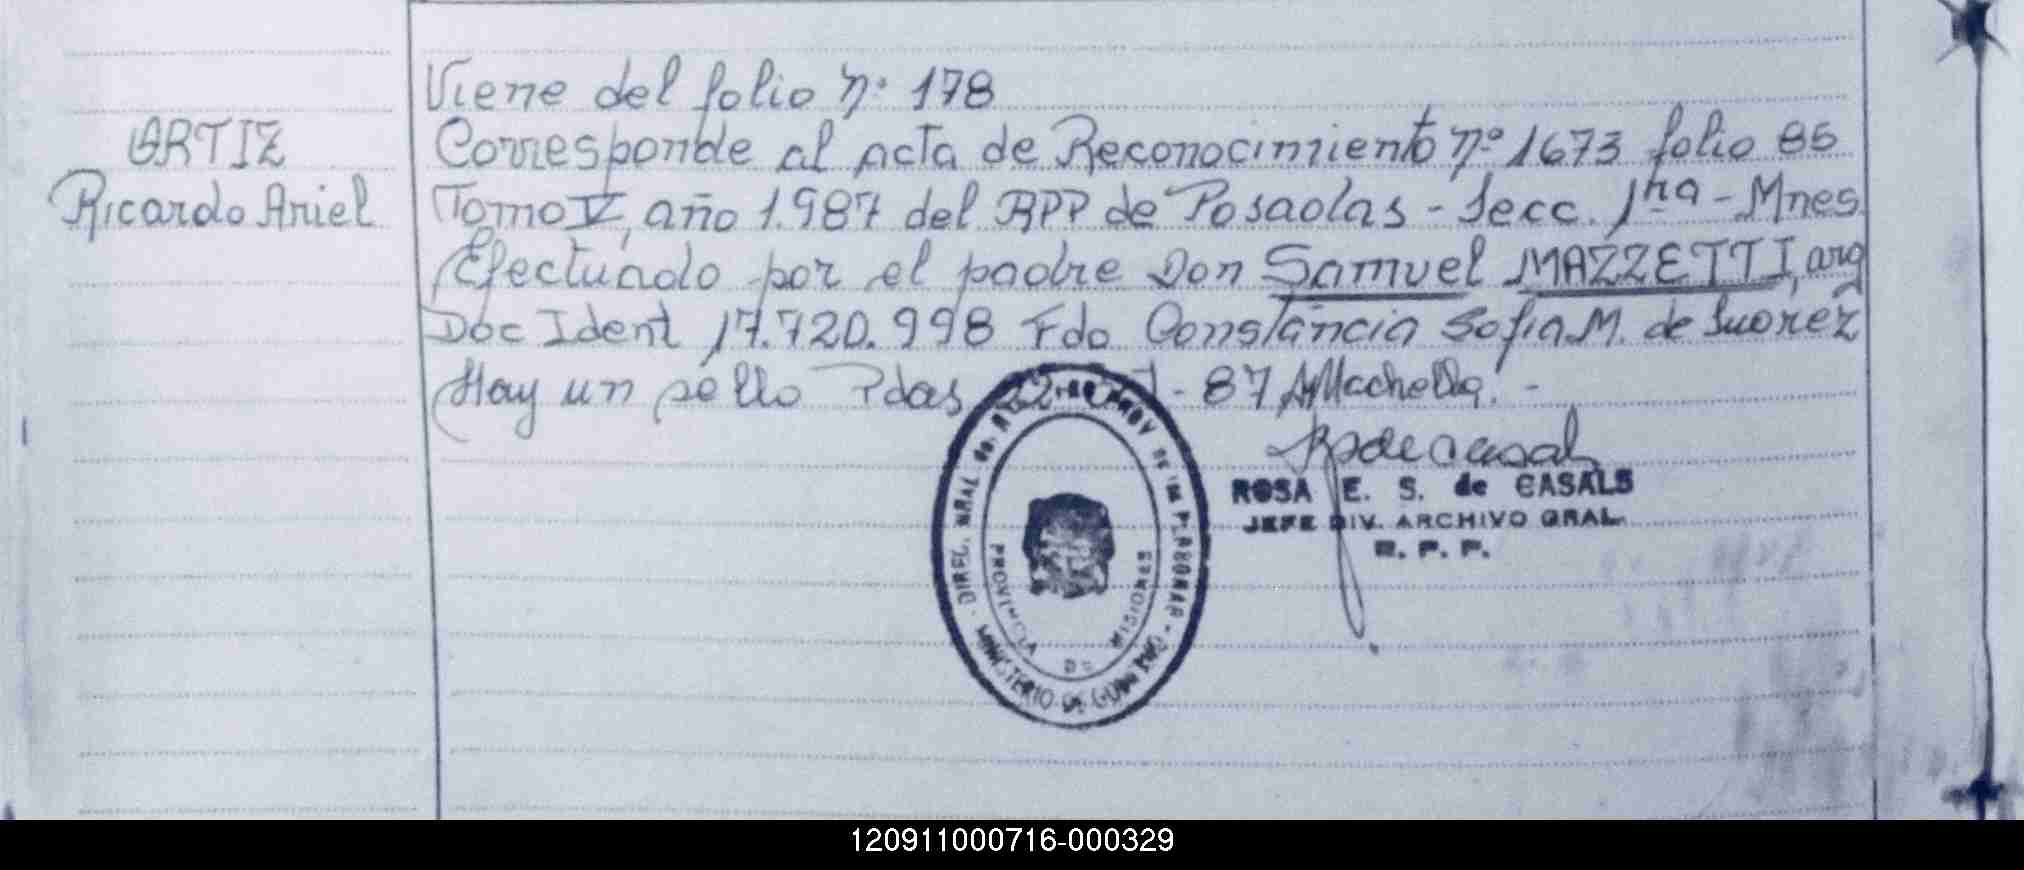 Viene del folio nº 178
ORTIZ
Ricardo Ariel
Corresponde al acta de Reconocimiento nº 1673 folio 85
Tomo V, año 1.987 del RPP de Posadas - Secc. 1ra - Mnes
Efectuado por el padre Don Samuel MAZZETTI, arg
Doc Ident 17.720.998 Fdo Constancia Sofia M. de Suarez
Hay un sello Pdas 22 - 87
ROSA E. S. de CASALS
JEFE DIV. ARCHIVO GRAL.
R. P. P.
PROVINCIA DE MISIONES
MINISTERIO DE
120911000716-000329